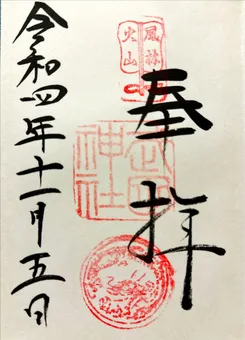 奉拝
風林
火山
武田
神社
令和四年十一月五日